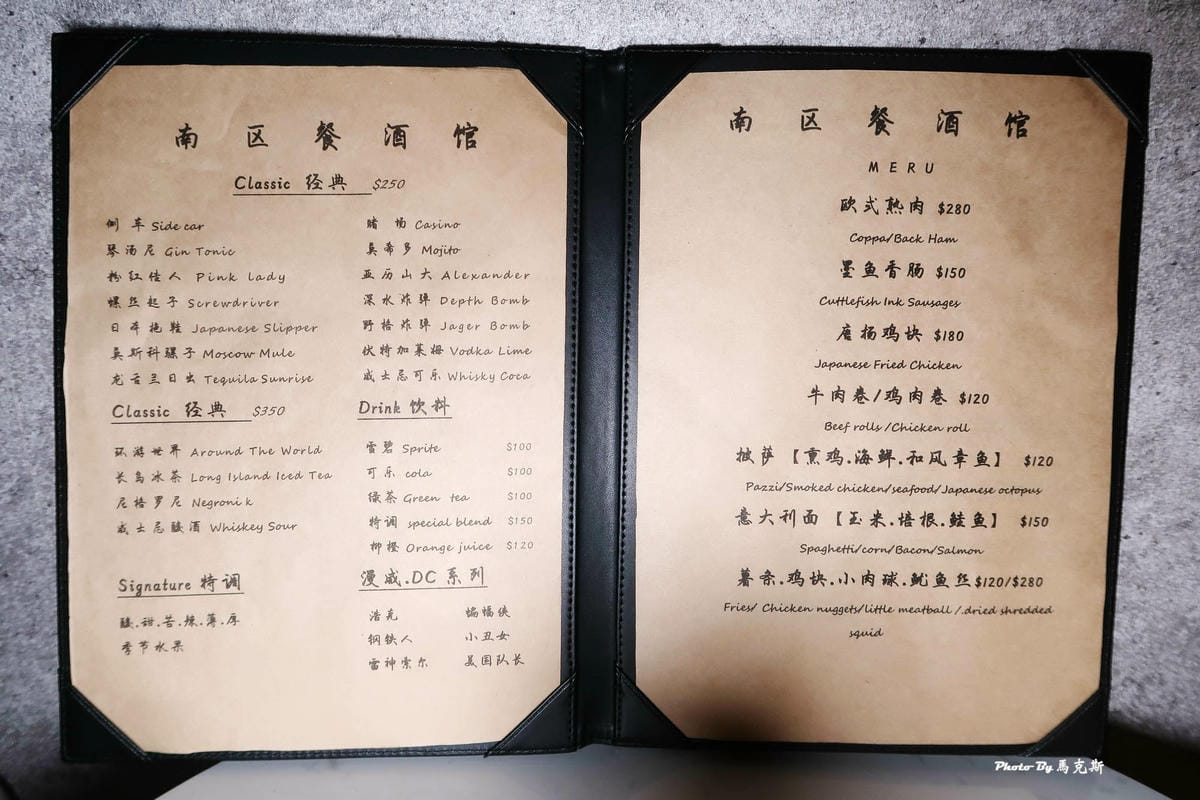 南 区 餐 酒 馆
Classic 经典 $250
侧 车 Side car
琴汤尼 Gin Tonic
粉红佳人 Pink lady
螺丝起子 Screwdriver
日本拖鞋 Japanese Slipper
莫斯科骡子 Moscow Mule
龙舌兰日出 Tequila Sunrise
赌 场 Casino
莫希多 Mojito
亚历山大 Alexander
深水炸弹 Depth Bomb
野格炸弹 Jager Bomb
伏特加莱姆 Vodka Lime
威士忌可乐 Whisky Coca
Classic 经典 $350
环游世界 Around The World
长岛冰茶 Long Island Iced Tea
尼格罗尼 Negroni k
威士忌酸酒 Whiskey Sour
Drink 饮料
雪碧 Sprite $100
可乐 cola $100
绿茶 Green tea $100
特调 special blend $150
柳橙 Orange juice $120
Signature 特调
酸.甜.苦.辣.薄.厚
季节水果
漫威.DC 系列
浩克 蝙蝠侠
钢铁人 小丑女
雷神索尔 美国队长
南 区 餐 酒 馆
MERU
欧式熟肉 $280
Coppa/Back Ham
墨鱼香肠 $150
Cuttlefish Ink Sausages
唐扬鸡块 $180
Japanese Fried Chicken
牛肉卷/鸡肉卷 $120
Beef rolls /Chicken roll
披萨【熏鸡.海鲜.和风章鱼】 $120
Pazzi/Smoked chicken/seafood/Japanese octopus
意大利面【玉米.培根.鲑鱼】 $150
Spaghetti/corn/Bacon/Salmon
薯条.鸡块.小肉球.鱿鱼丝$120/$280
Fries/ Chicken nuggets/little meatball /.dried shredded
squid
Photo By 馬克斯